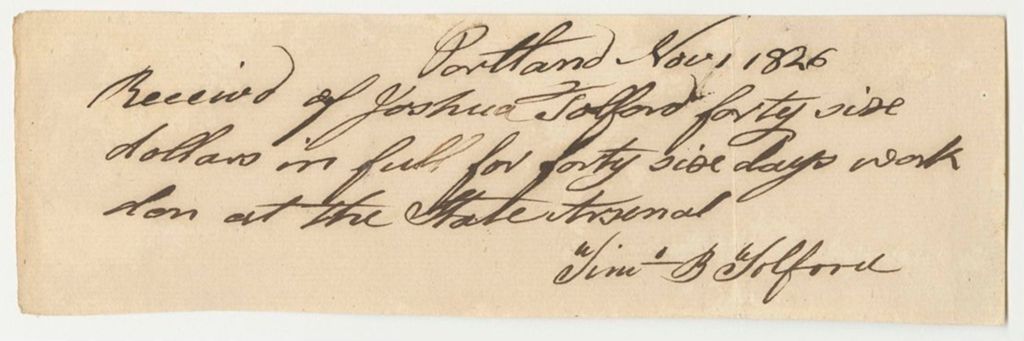 Portland Nov 1 1826
Receivd of Joshua Tolford forty six
dollars in full for forty six days work
don at the State Arsenal
Timo B Tolford